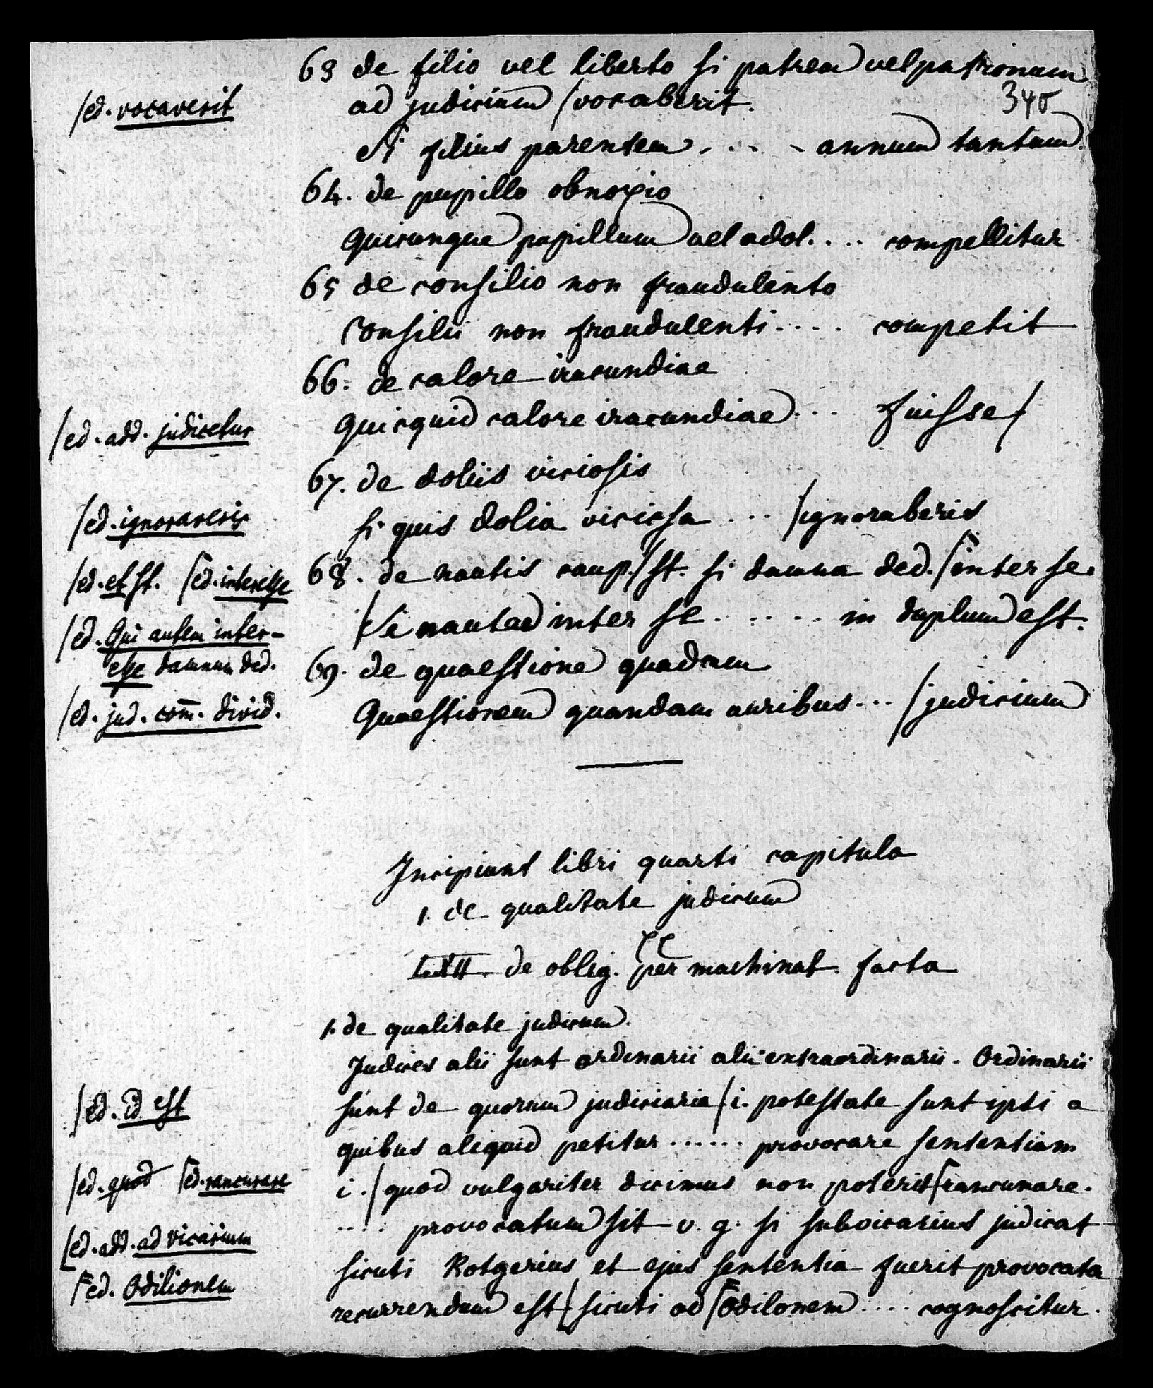 63 de filio vel liberto si patrem vel patronum
340
/ed. vocaverit
ad judicium /vocaberit.
Si filius parentem . . . . annum tantum.
64. de pupillo obnoxio
Quicunque pupillum vel adol. . . . compellitur
65 de consilio non fraudulento
Consilii non fraudulenti . . . . competit
66. de calore iracundiae
Quicquid calore iracundiae . . . fuisse/
/ed. add. judicetur
67. de doliis viciosis
si quis dolia viciosa . . . /ignoraberis
/ed. ignoraveris
68. de nautis caup/st. si damna ded. ⌈inter se.
/ed. et st. ⌈ed. interesse
/Si nautae inter se . . . . . in duplum est.
/ed. Qui autem inter-
esse damnum ded.
69. de quaestione quadam
Quaestionem quandam auribus . . . /judicium
/ed. jud. com̄. divid.
Incipiunt libri quarti capitula
1. de qualitate judicum
de oblig. per machinat. facta
1. de qualitate judicum.
Judices alii sunt ordinarii alii extraordinarii. Ordinarii
sunt de quorum judiciaria /i. potestate sunt ipsi a
/ed. id est
quibus aliquid petitur . . . . . . provocare sententiam
i. /quod vulgariter dicimus non poterit ⌈rancunare.
/ed. quod ⌈ed. rancurare
. . . . provocatum sit v. g. si subvicarius judicat
sicuti Rotgerius et ejus sententia fuerit provocata
[ed. add. ad vicarium
recurrendum est [sicuti ad ⌈Odilonem . . . . cognoscitur.
⌈ed. Odilionem